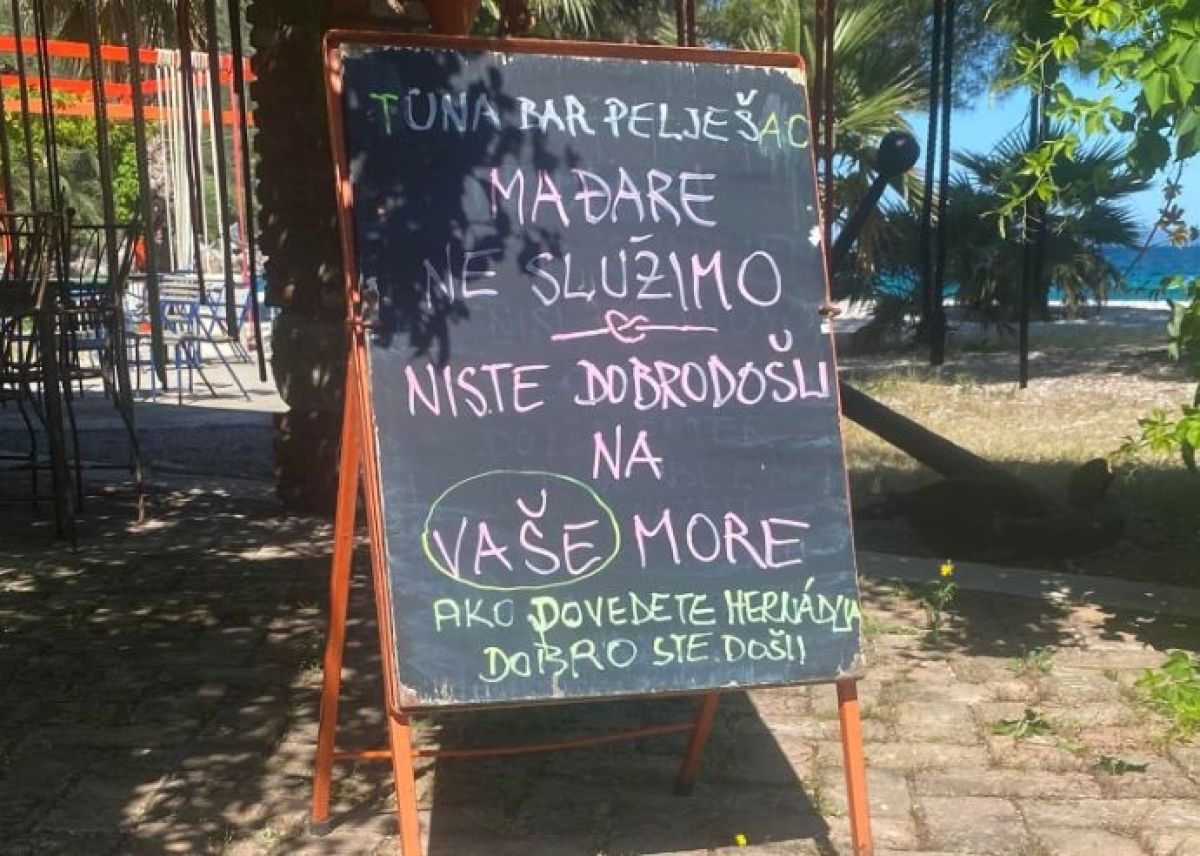 TUNA BAR PELJEŠAC
MAĐARE
NE SLUŽIMO
NISTE DOBRODOŠLI
NA
VAŠE MORE
AKO DOVEDETE HERNÁDIJA
DOBRO STE DOŠLI